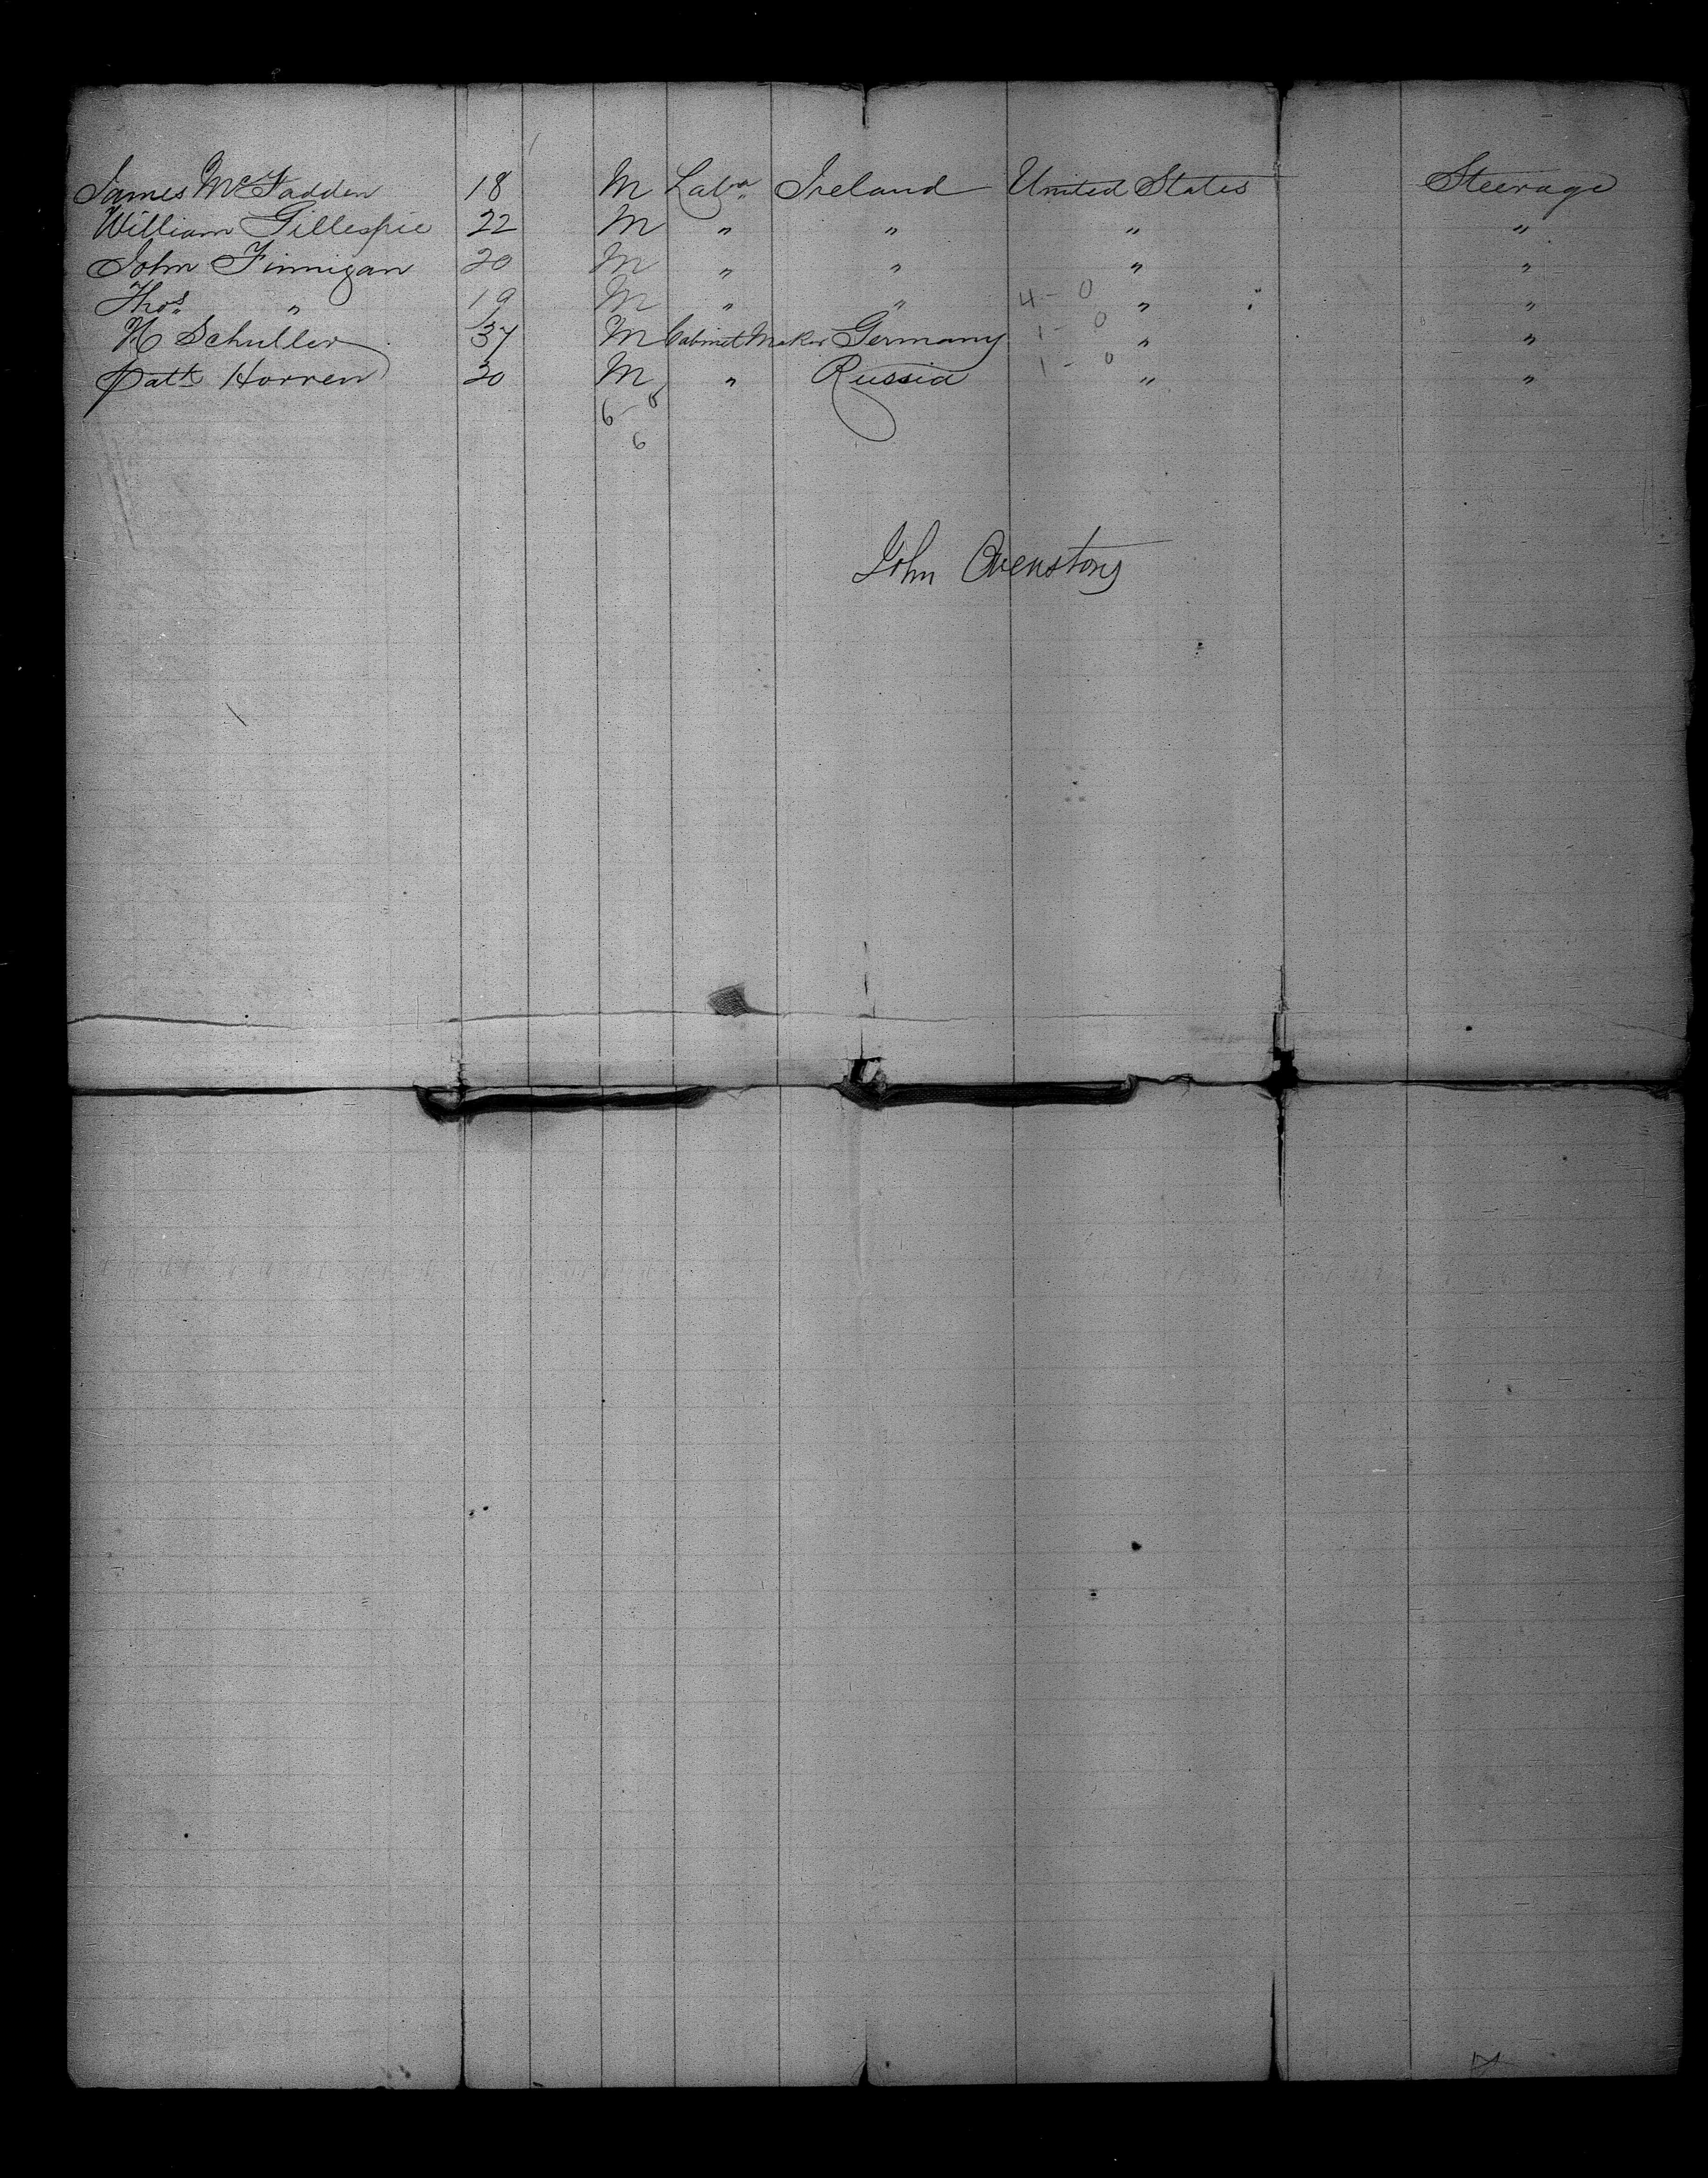 James McFadden 18 M Labr Ireland United States Steerage
William Gillespie 22 M " " " "
John Finnigan 20 M " " " "
Thos " 19 M " " 4-0 " "
H Schuller 37 M Cabinet Maker Germany 1-0 " "
Patk Horren 30 M " Russia 1-0 " "
6-0
6
John Ovenstony